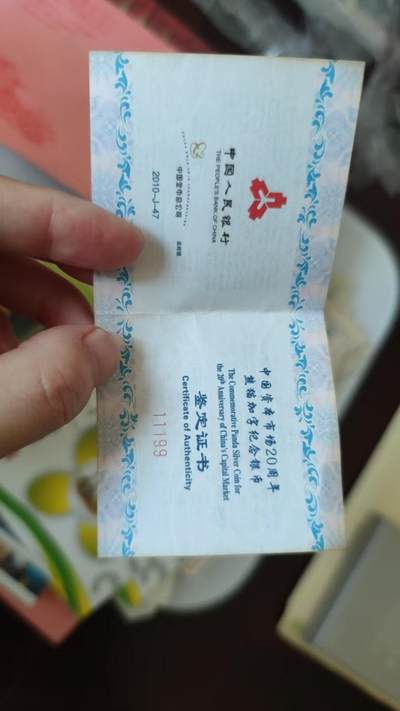 中国人民银行
THE PEOPLE'S BANK OF CHINA
中国金币总公司
2010-J-47
中国资本市场20周年
熊猫加字纪念银币
The Commemorative Panda Silver Coin for
the 20th Anniversary of China's Capital Market
鉴定证书
Certificate of Authenticity
11199